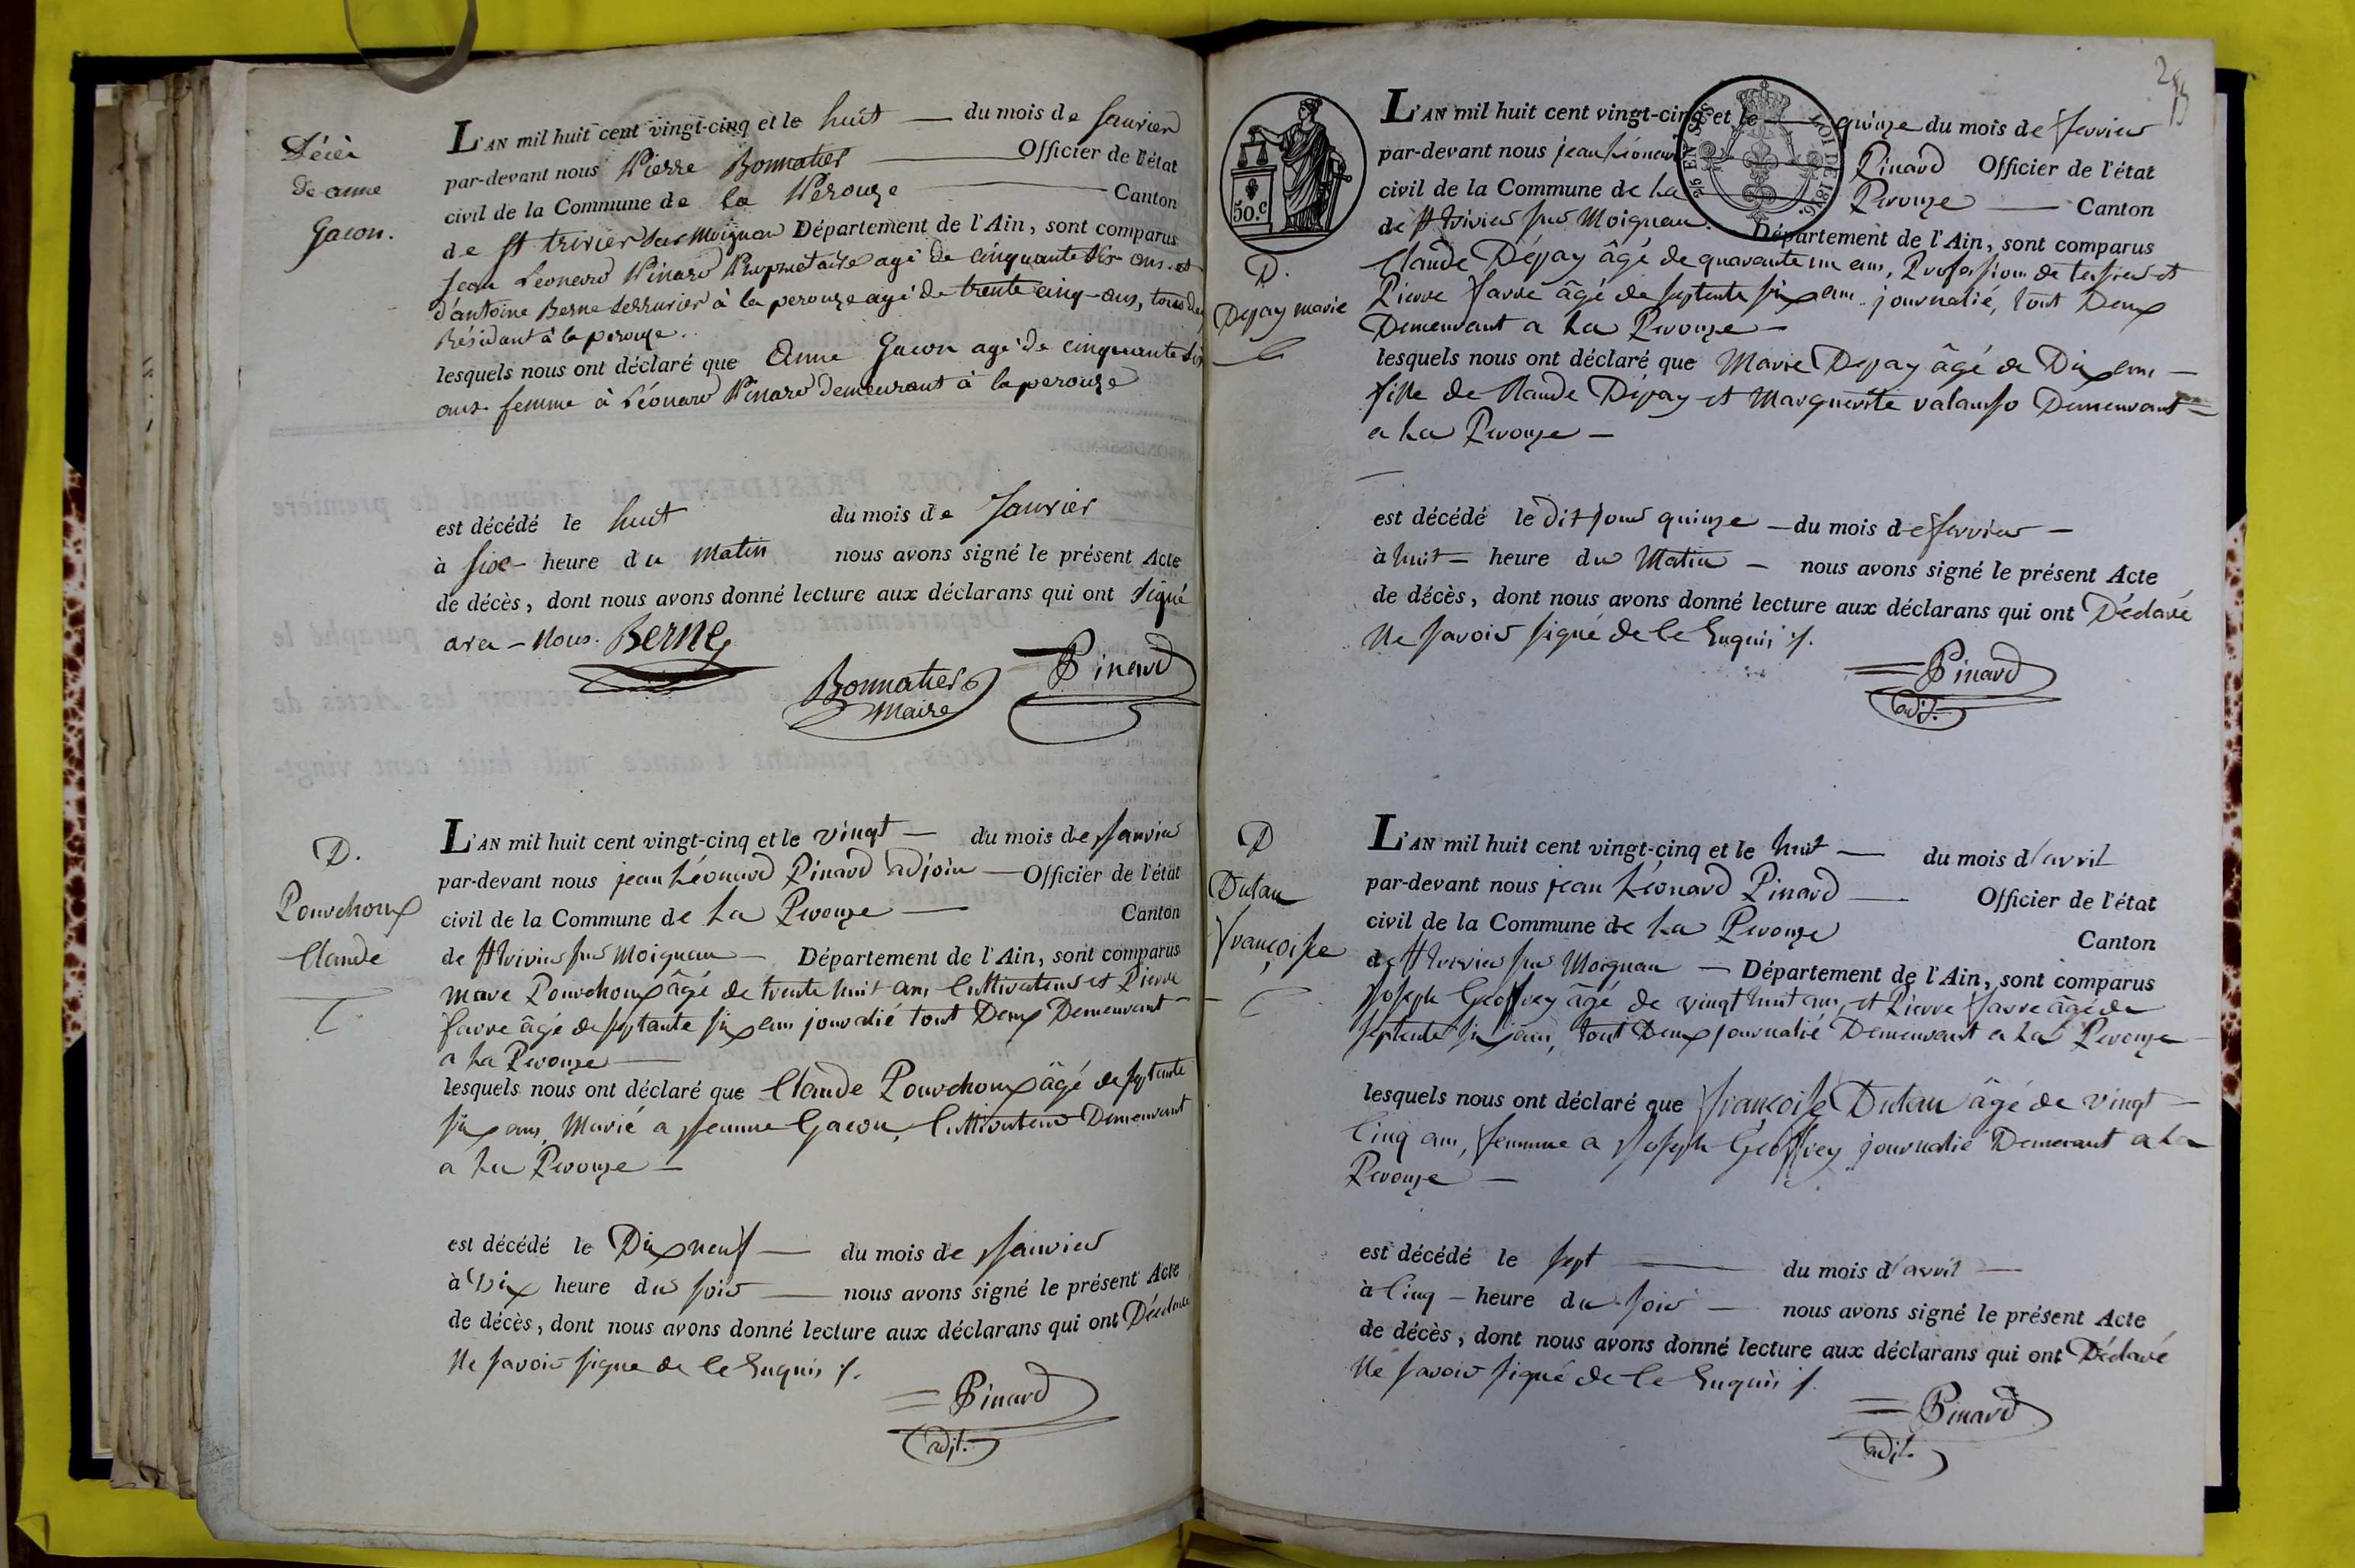 Décès
de anne
Gacon.
L'AN mil huit cent vingt-cinq et le huit — du mois de Janvier
par-devant nous Pierre Bonnatier — Officier de l'état
civil de la Commune de la Pérouze — Canton
de St trivier sur Moignan Département de l'Ain, sont comparus
Jean Leonard Pinard Propriétaire agé de cinquante six ans. et
d'antoine Berne serrurier à la perouze agé de trente cinq ans, tous deux
Résidant à la perouze.
lesquels nous ont déclaré que Anne Gacon agé de cinquante six
ans. femme à Léonard Pinard demeurant à la perouze
est décédé le huit du mois de Janvier
à six - heure du matin nous avons signé le présent Acte
de décès, dont nous avons donné lecture aux déclarans qui ont signé
avec - Nous. Berne
Bonnatier
maire
Pinard
D.
Pourchoux
Claude
L'AN mil huit cent vingt-cinq et le vingt — du mois de Janvier
par-devant nous jean Léonard Pinard adjoin — Officier de l'état
civil de la Commune de La Perouze — Canton
de St trivier sur Moignan — Département de l'Ain, sont comparus
marc Pourchoux âgé de trente huit ans Cultivateur et Pierre
favre âgé de septante six ans journalié tout Deux Demeurant
a La Perouze —
lesquels nous ont déclaré que Claude Pourchoux âgé de septente
six ans, Marié a Jeanne Gacon, Cultivateur Demeurant
a La Perouze —
est décédé le Dix neuf — du mois de Janvier
à Dix heure du soir — nous avons signé le présent Acte
de décès, dont nous avons donné lecture aux déclarans qui ont Déclaré
Ne savoir signe de ce Enquis ./.
Pinard
adj.t
50.c
EN SUS
LOI DE 1816.
D.
Depay marie
L'AN mil huit cent vingt-cinq et le — quinze du mois de fevrier
par-devant nous jean Léonard Pinard Officier de l'état
civil de la Commune de La Perouze — Canton
de St trivier sur Moignan. Département de l'Ain, sont comparus
Claude Dépay âgé de quarante un ans, Profession de tersier et
Pierre favre âgé de septente six ans journalié, tout Deux
Demeurant a La Perouze —
lesquels nous ont déclaré que Marie Depay âgé de Dix ans —
fille de Claude Dépay et Marguerite valanso Demeurant
a La Perouze —
est décédé le Dit jour quinze — du mois de fevrier —
à huit = heure du Matin — nous avons signé le présent Acte
de décès, dont nous avons donné lecture aux déclarans qui ont Déclaré
Ne savoir signé de ce Enquis ./.
Pinard
adj.t
D
Dutau
françoise
L'AN mil huit cent vingt-cinq et le huit — du mois d'avril
par-devant nous jean Léonard Pinard — Officier de l'état
civil de la Commune de La Perouze Canton
de St trivier sur Moignan — Département de l'Ain, sont comparus
Joseph Geoffrey âgé de vingt huit ans, et Pierre favre âgé de
septente six ans, tout Deux journalié Demeurant a La Perouze
lesquels nous ont déclaré que françoise Dutau âgé de vingt —
Cinq ans, femme a Joseph Geoffrey journalié Demerant a La
Perouze —
est décédé le sept — du mois d'avril —
à Cinq — heure du soir — nous avons signé le présent Acte
de décès, dont nous avons donné lecture aux déclarans qui ont Déclaré
Ne savoir signé de ce Enquis ./.
Pinard
adj.t